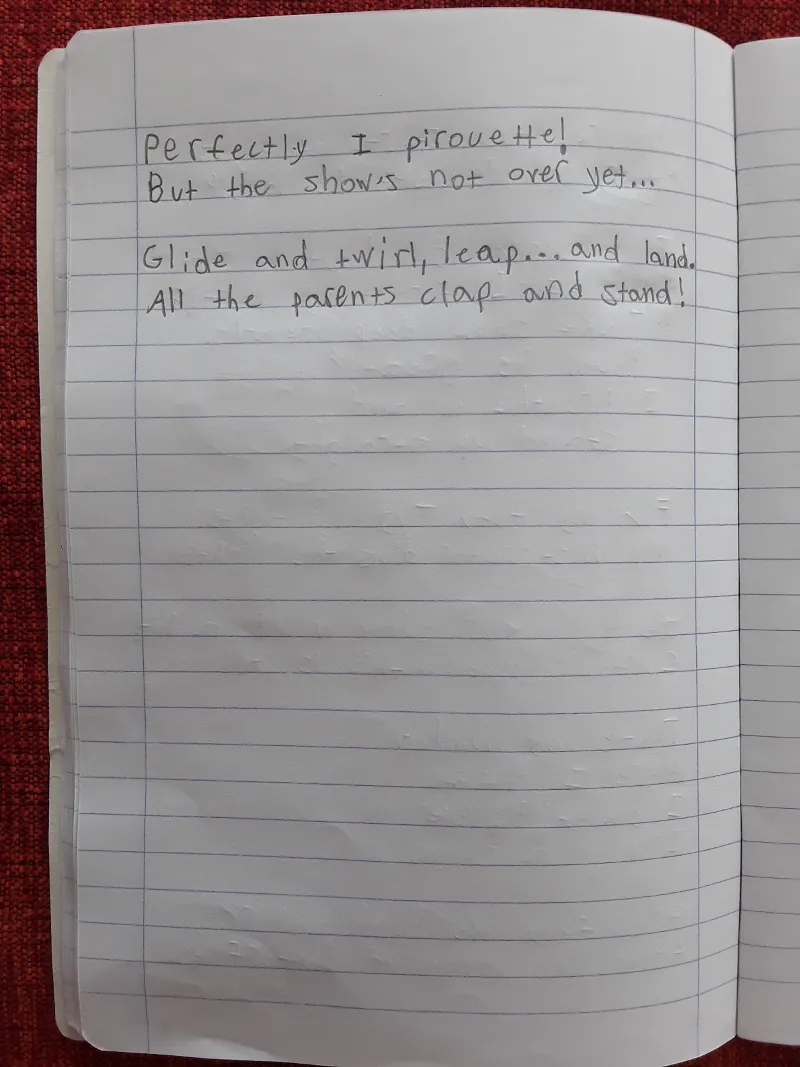 Perfectly I pirouette!
But the show's not over yet...
Glide and twirl, leap... and land.
All the parents clap and stand!